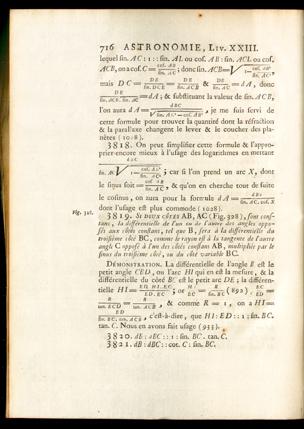 716 ASTRONOMIE, LIV. XXIII.
lequel sin. AC : 1 :: sin. AL ou cos. AB : sin. ACL ou cos.
ACB, on a cos. C = cos. AB / sin. AC ; donc sin. ACB = √1 − cos. AB² / sin. AC²,
mais DC = DE / sin. DCE = DE / sin. ACB & DE / sin. AC = dA, donc
DE / sin. ACB. sin. AC = dA ; & substituant la valeur de sin. ACB,
l'on aura dA = dBC / √sin. AC² − cos. AB², je me suis servi de
cette formule pour trouver la quantité dont la réfraction
& la parallaxe changent le lever & le coucher des pla-
nètes
3818. On peut simplifier cette formule & l'appro-
prier encore mieux à l'usage des logarithmes en mettant
dBC
sin. AC √1 − cos. AB² / sin. AC² ; car si l'on prend un arc X, dont
le sinus soit = cos. AB / sin. AC, & qu'on en cherche tout de suite
le cosinus, on aura pour la formule dA = dBC / sin. AC. cos. X
dont l'usage est plus commode (1028).
Fig. 328.
3819. SI DEUX CÔTÉS AB, AC (Fig. 328), sont conf-
tans, la différentielle de l'un ou de l'autre des angles oppo-
sés aux côtés constans, tel que B, sera à la différentielle du
troisième côté BC, comme le rayon est à la tangente de l'autre
angle C opposé à l'un des côtés constans AB, multipliée par le
sinus du troisième côté, ou du côté variable BC.
DÉMONSTRATION. La différentielle de l'angle B est le
petit angle CED, ou l'arc HI qui en est la mesure, & la
différentielle du côté BC est le petit arc DE ; la différen-
tielle HI = EC
tang. ECD = tan. ACB, & comme R = 1, on a HI =
ED / sin. BC. tan. ACB, c'est-à-dire, que HI : ED :: 1 : sin. BC.
tan. C. Nous en avons fait usage (933).
3820. dB : dBC :: 1 : sin. BC. tan. C.
3821. dB : dBC :: cot. C : sin. BC.